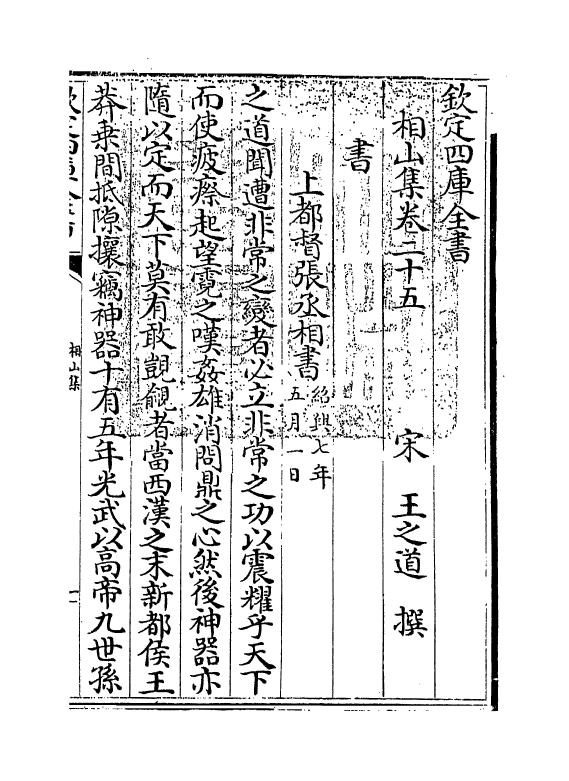 欽定四庫全書
相山集卷二十五
宋 王之道 撰
書
上都督張丞相書
紹興七年
五月一日
之道聞遭非常之變者必立非常之功以震耀乎天下
而使疲瘵起望霓之嘆姦雄消問鼎之心然後神器亦
隨以定而天下莫有敢覬覦者當西漢之末新都侯王
莽乗間抵隙攘竊神器十有五年光武以高帝九世孫
欽定四庫全書
相山集
一